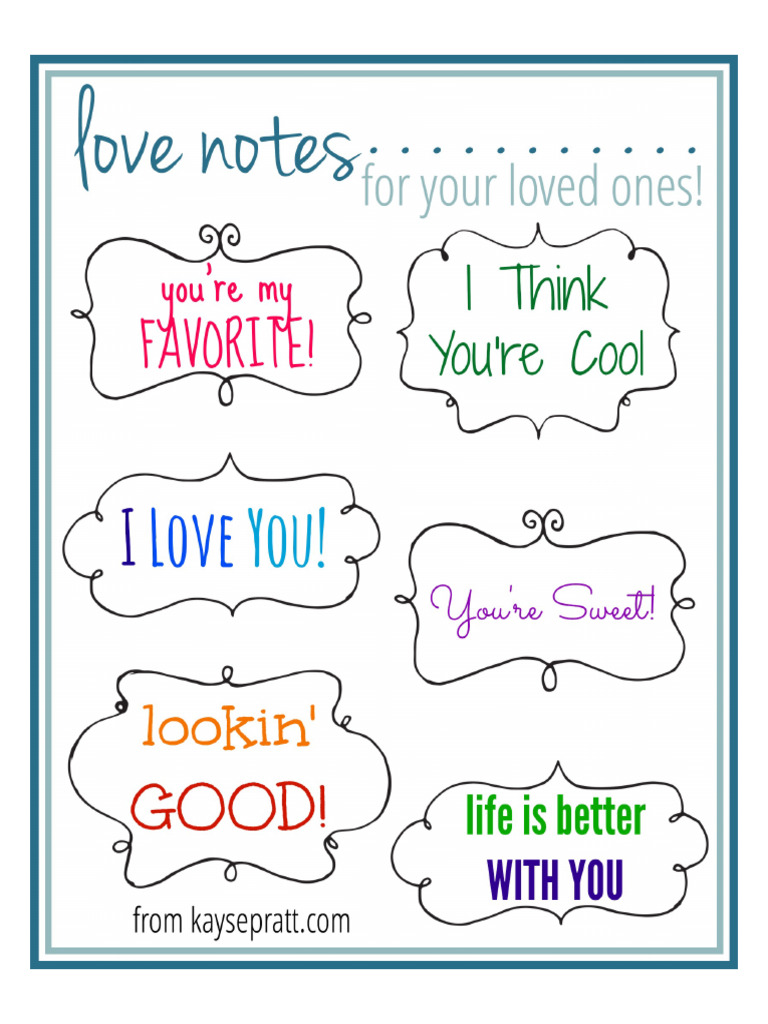 love notes...........
for your loved ones!
you're my
FAVORITE!
I Think
You're Cool
I LOVE YOU!
You're Sweet!
lookin'
GOOD!
life is better
WITH YOU
from kaysepratt.com